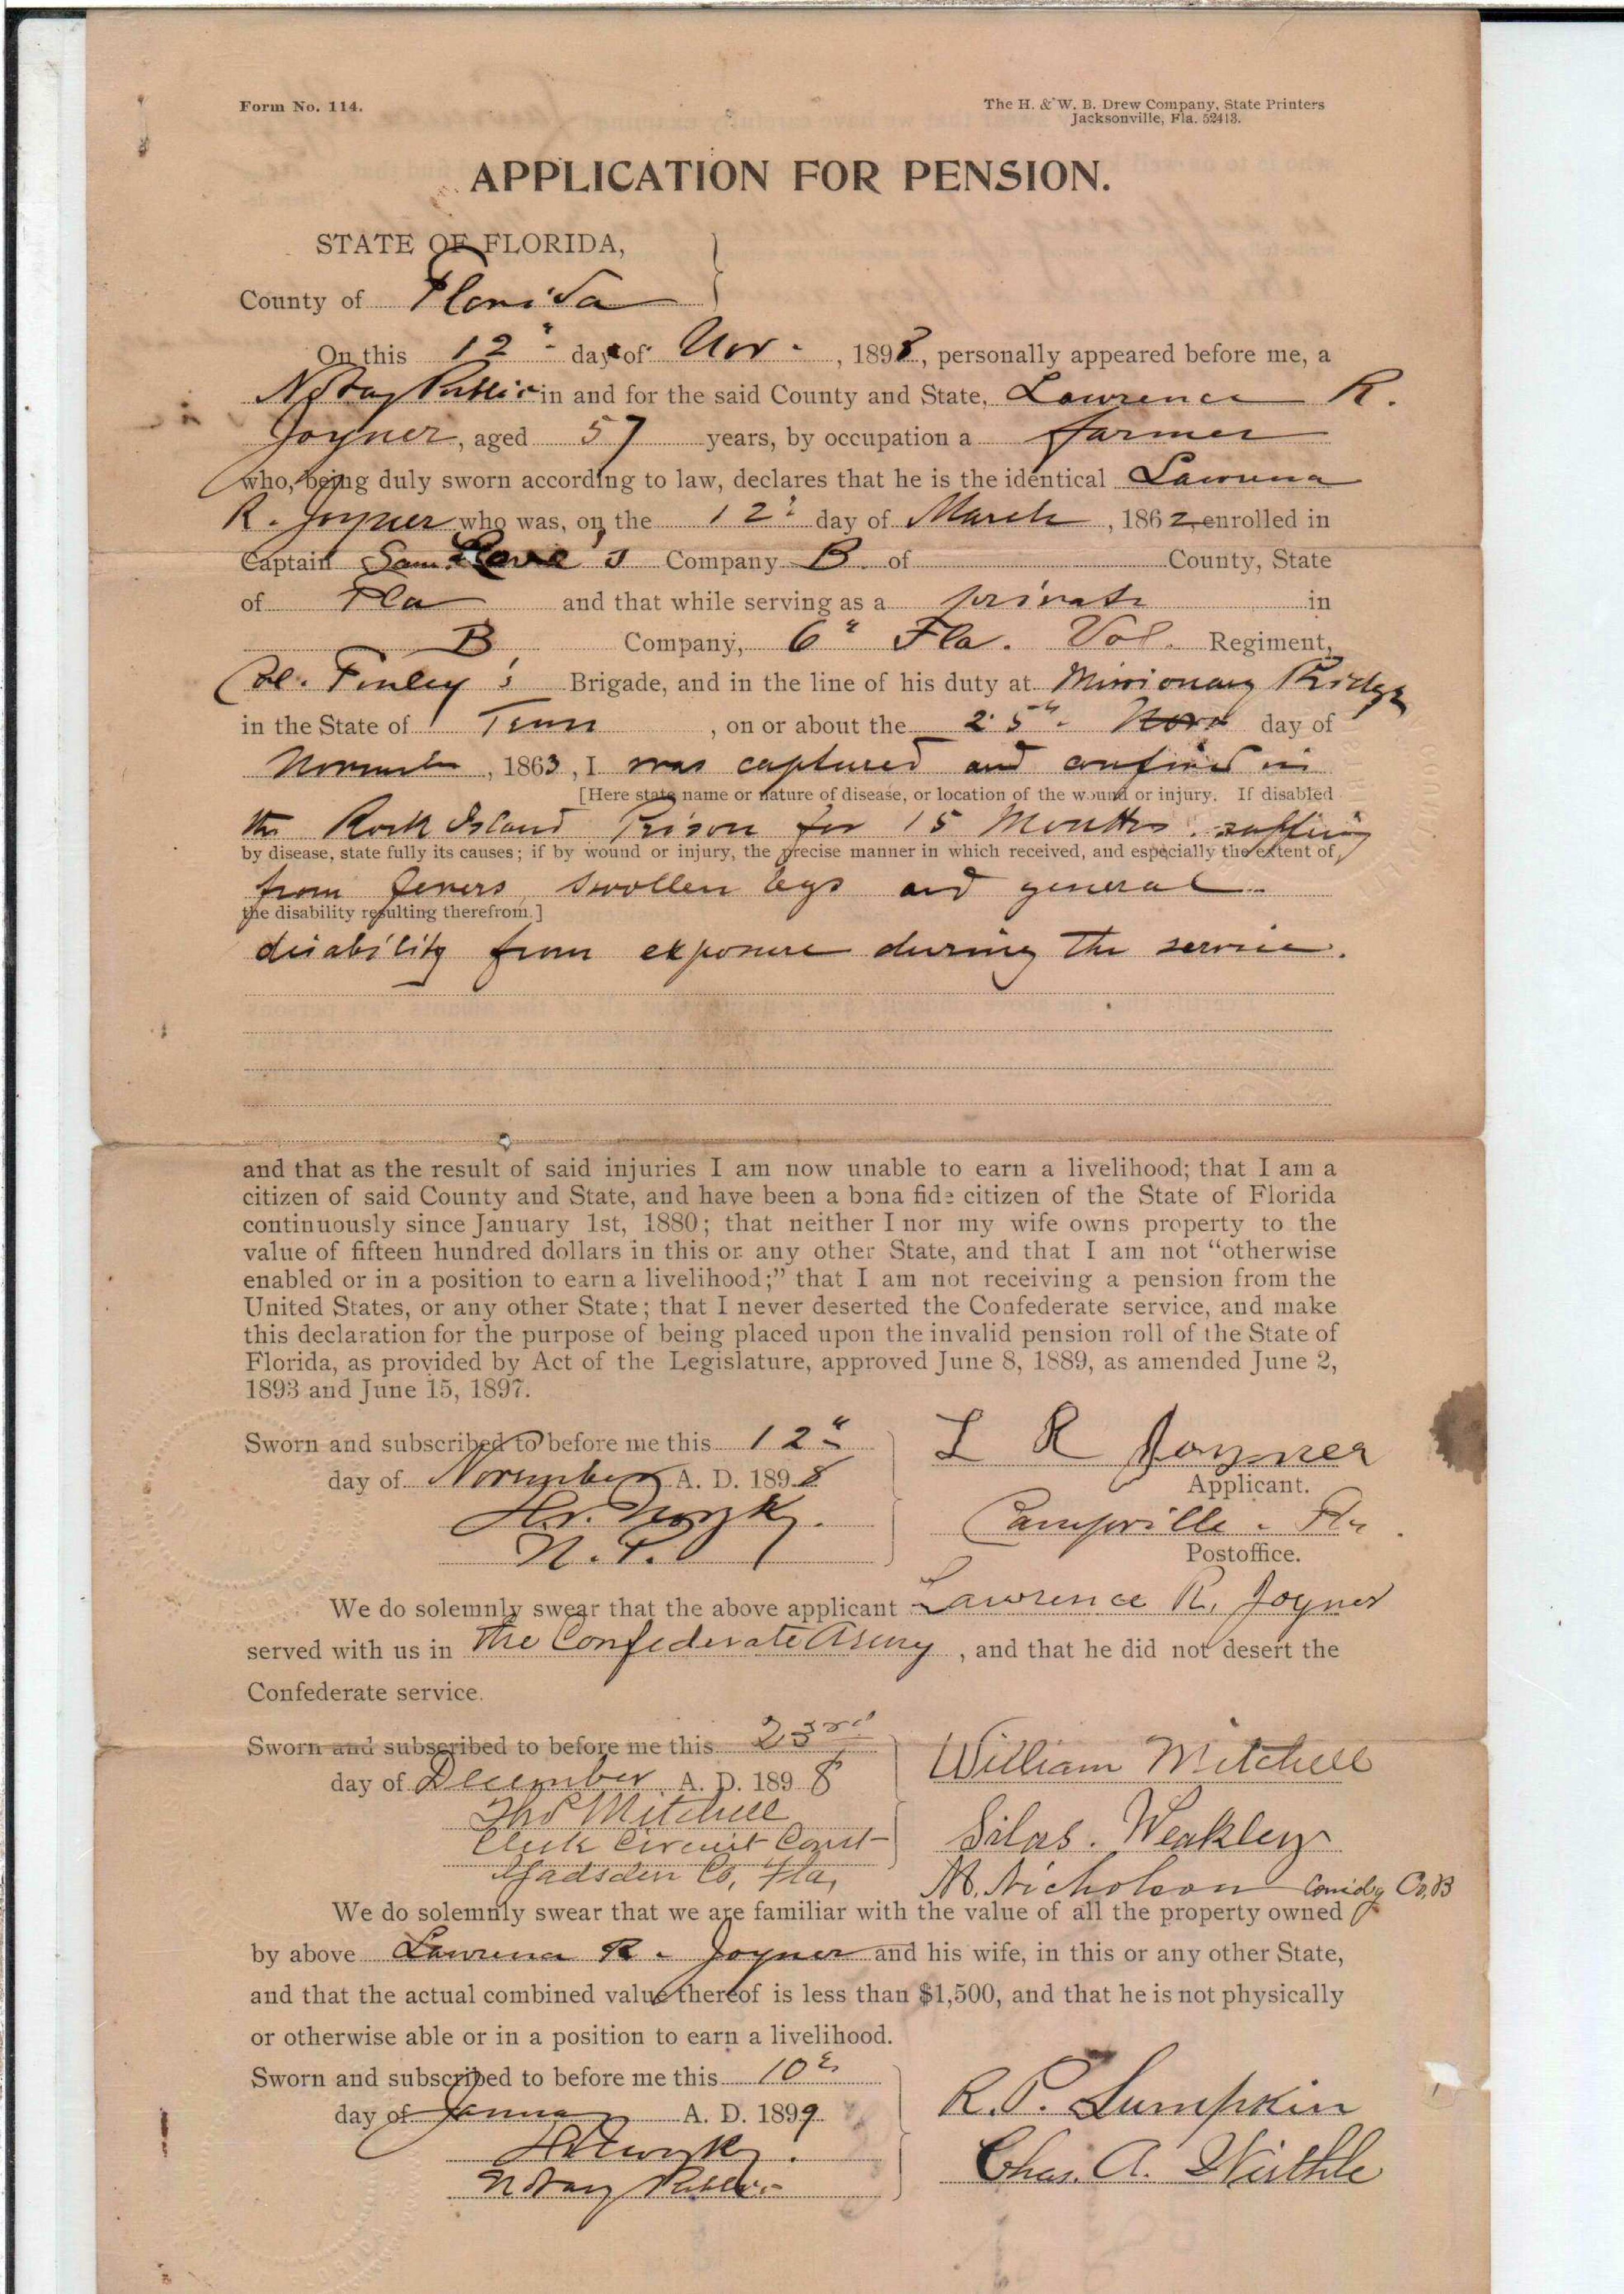 Form No. 114.
The H. & W. B. Drew Company, State Printers
Jacksonville, Fla. 52413.
APPLICATION FOR PENSION.
STATE OF FLORIDA,
County of Florida
On this 12" day of Nov. , 1898, personally appeared before me, a
Notary Public in and for the said County and State, Lawrence R.
Joyner, aged 57 years, by occupation a farmer
who, being duly sworn according to law, declares that he is the identical Lawrence
R. Joyner who was, on the 12" day of March , 1862, enrolled in
Captain Sam. 's Company B. of County, State
of Fla and that while serving as a private in
B Company, 6" Fla. Vol. Regiment,
Col. Finley's Brigade, and in the line of his duty at Missionary Ridge
in the State of Tenn , on or about the 25" day of
November , 1863, I was captured and confined in
[Here state name or nature of disease, or location of the wound or injury. If disabled
the Rock Island Prison for 15 Months. suffering
by disease, state fully its causes; if by wound or injury, the precise manner in which received, and especially the extent of
from fevers, swollen legs and general
the disability resulting therefrom.]
disability from exposure during the service.
and that as the result of said injuries I am now unable to earn a livelihood; that I am a
citizen of said County and State, and have been a bona fide citizen of the State of Florida
continuously since January 1st, 1880; that neither I nor my wife owns property to the
value of fifteen hundred dollars in this or any other State, and that I am not "otherwise
enabled or in a position to earn a livelihood;" that I am not receiving a pension from the
United States, or any other State; that I never deserted the Confederate service, and make
this declaration for the purpose of being placed upon the invalid pension roll of the State of
Florida, as provided by Act of the Legislature, approved June 8, 1889, as amended June 2,
1893 and June 15, 1897.
Sworn and subscribed to before me this 12"
day of November A. D. 1898
N. P.
L R Joyner
Applicant.
Campville. Fla.
Postoffice.
We do solemnly swear that the above applicant Lawrence R. Joyner
served with us in the Confederate Army , and that he did not desert the
Confederate service.
Sworn and subscribed to before me this 23rd
day of December A. D. 1898
Thos Mitchell
Clerk Circuit Court
Gadsden Co, Fla,
William Mitchell
Silas. Weakley
M. Nicholson Comdg Co, B
We do solemnly swear that we are familiar with the value of all the property owned
by above Lawrence R. Joyner and his wife, in this or any other State,
and that the actual combined value thereof is less than $1,500, and that he is not physically
or otherwise able or in a position to earn a livelihood.
Sworn and subscribed to before me this 10"
day of January A. D. 1899
Notary Public
R. P. Lumpkin
Chas. A.